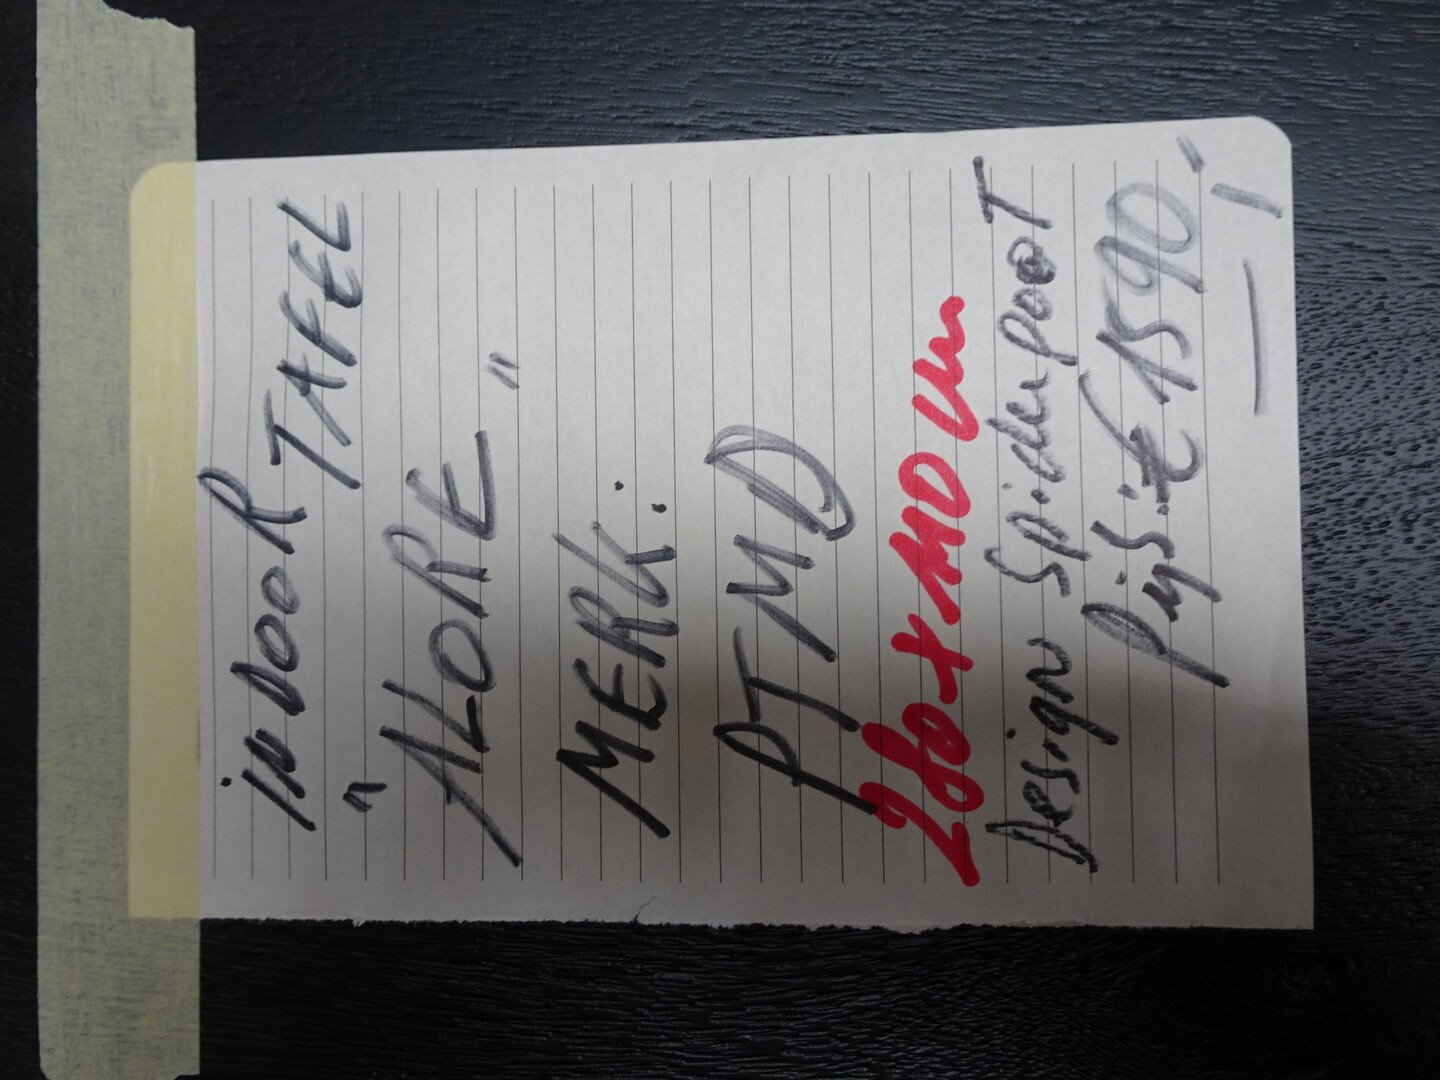 iNDOOR TAFEL
"ALORE"
MERK:
PTMD
260x110 cm
Design Spiderpoot
Pijs: € 1590,-